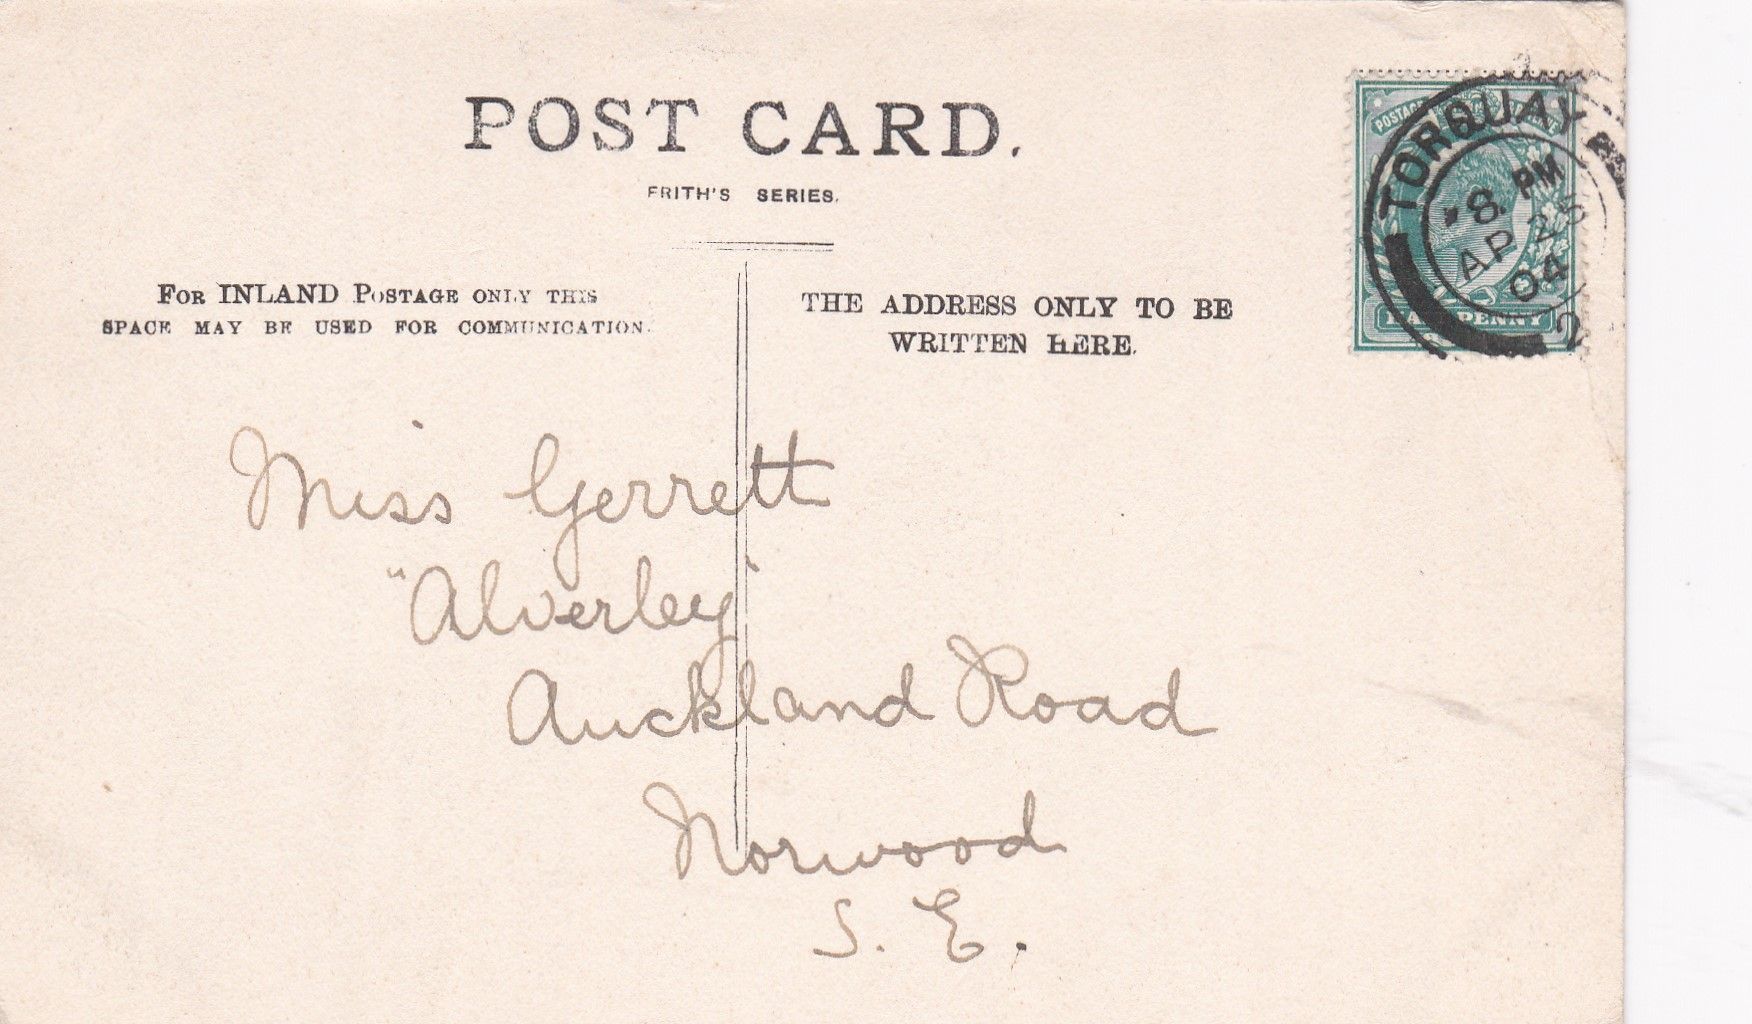 POST CARD.
FRITH'S SERIES.
FOR INLAND POSTAGE ONLY THIS
SPACE MAY BE USED FOR COMMUNICATION.
THE ADDRESS ONLY TO BE
WRITTEN HERE.
POSTAGE
TORQUAY
8 PM
AP 25
04
2
HALFPENNY
Miss Gerrett
"Alverley"
Auckland Road
Norwood
S. E.